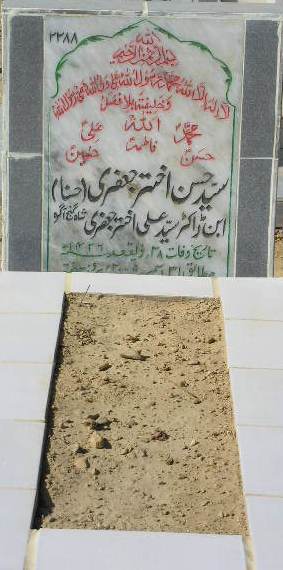 ۲۲۸۸
اللہ
بسم اللہ الرحمن الرحیم
لا الہ الا اللہ محمد رسول اللہ علی ولی اللہ
وخلیفتہ بلا فصل
محمدؐ اللہ علیؑ
فاطمہؑ
حسنؑ حسینؑ
سید حسن اختر جعفری (حسنا)
ابن ڈاکٹر سید علی اختر جعفری شاہ گنج آگرہ
تاریخ وفات ۲۸ ذیقعد
مطابق ۳۱